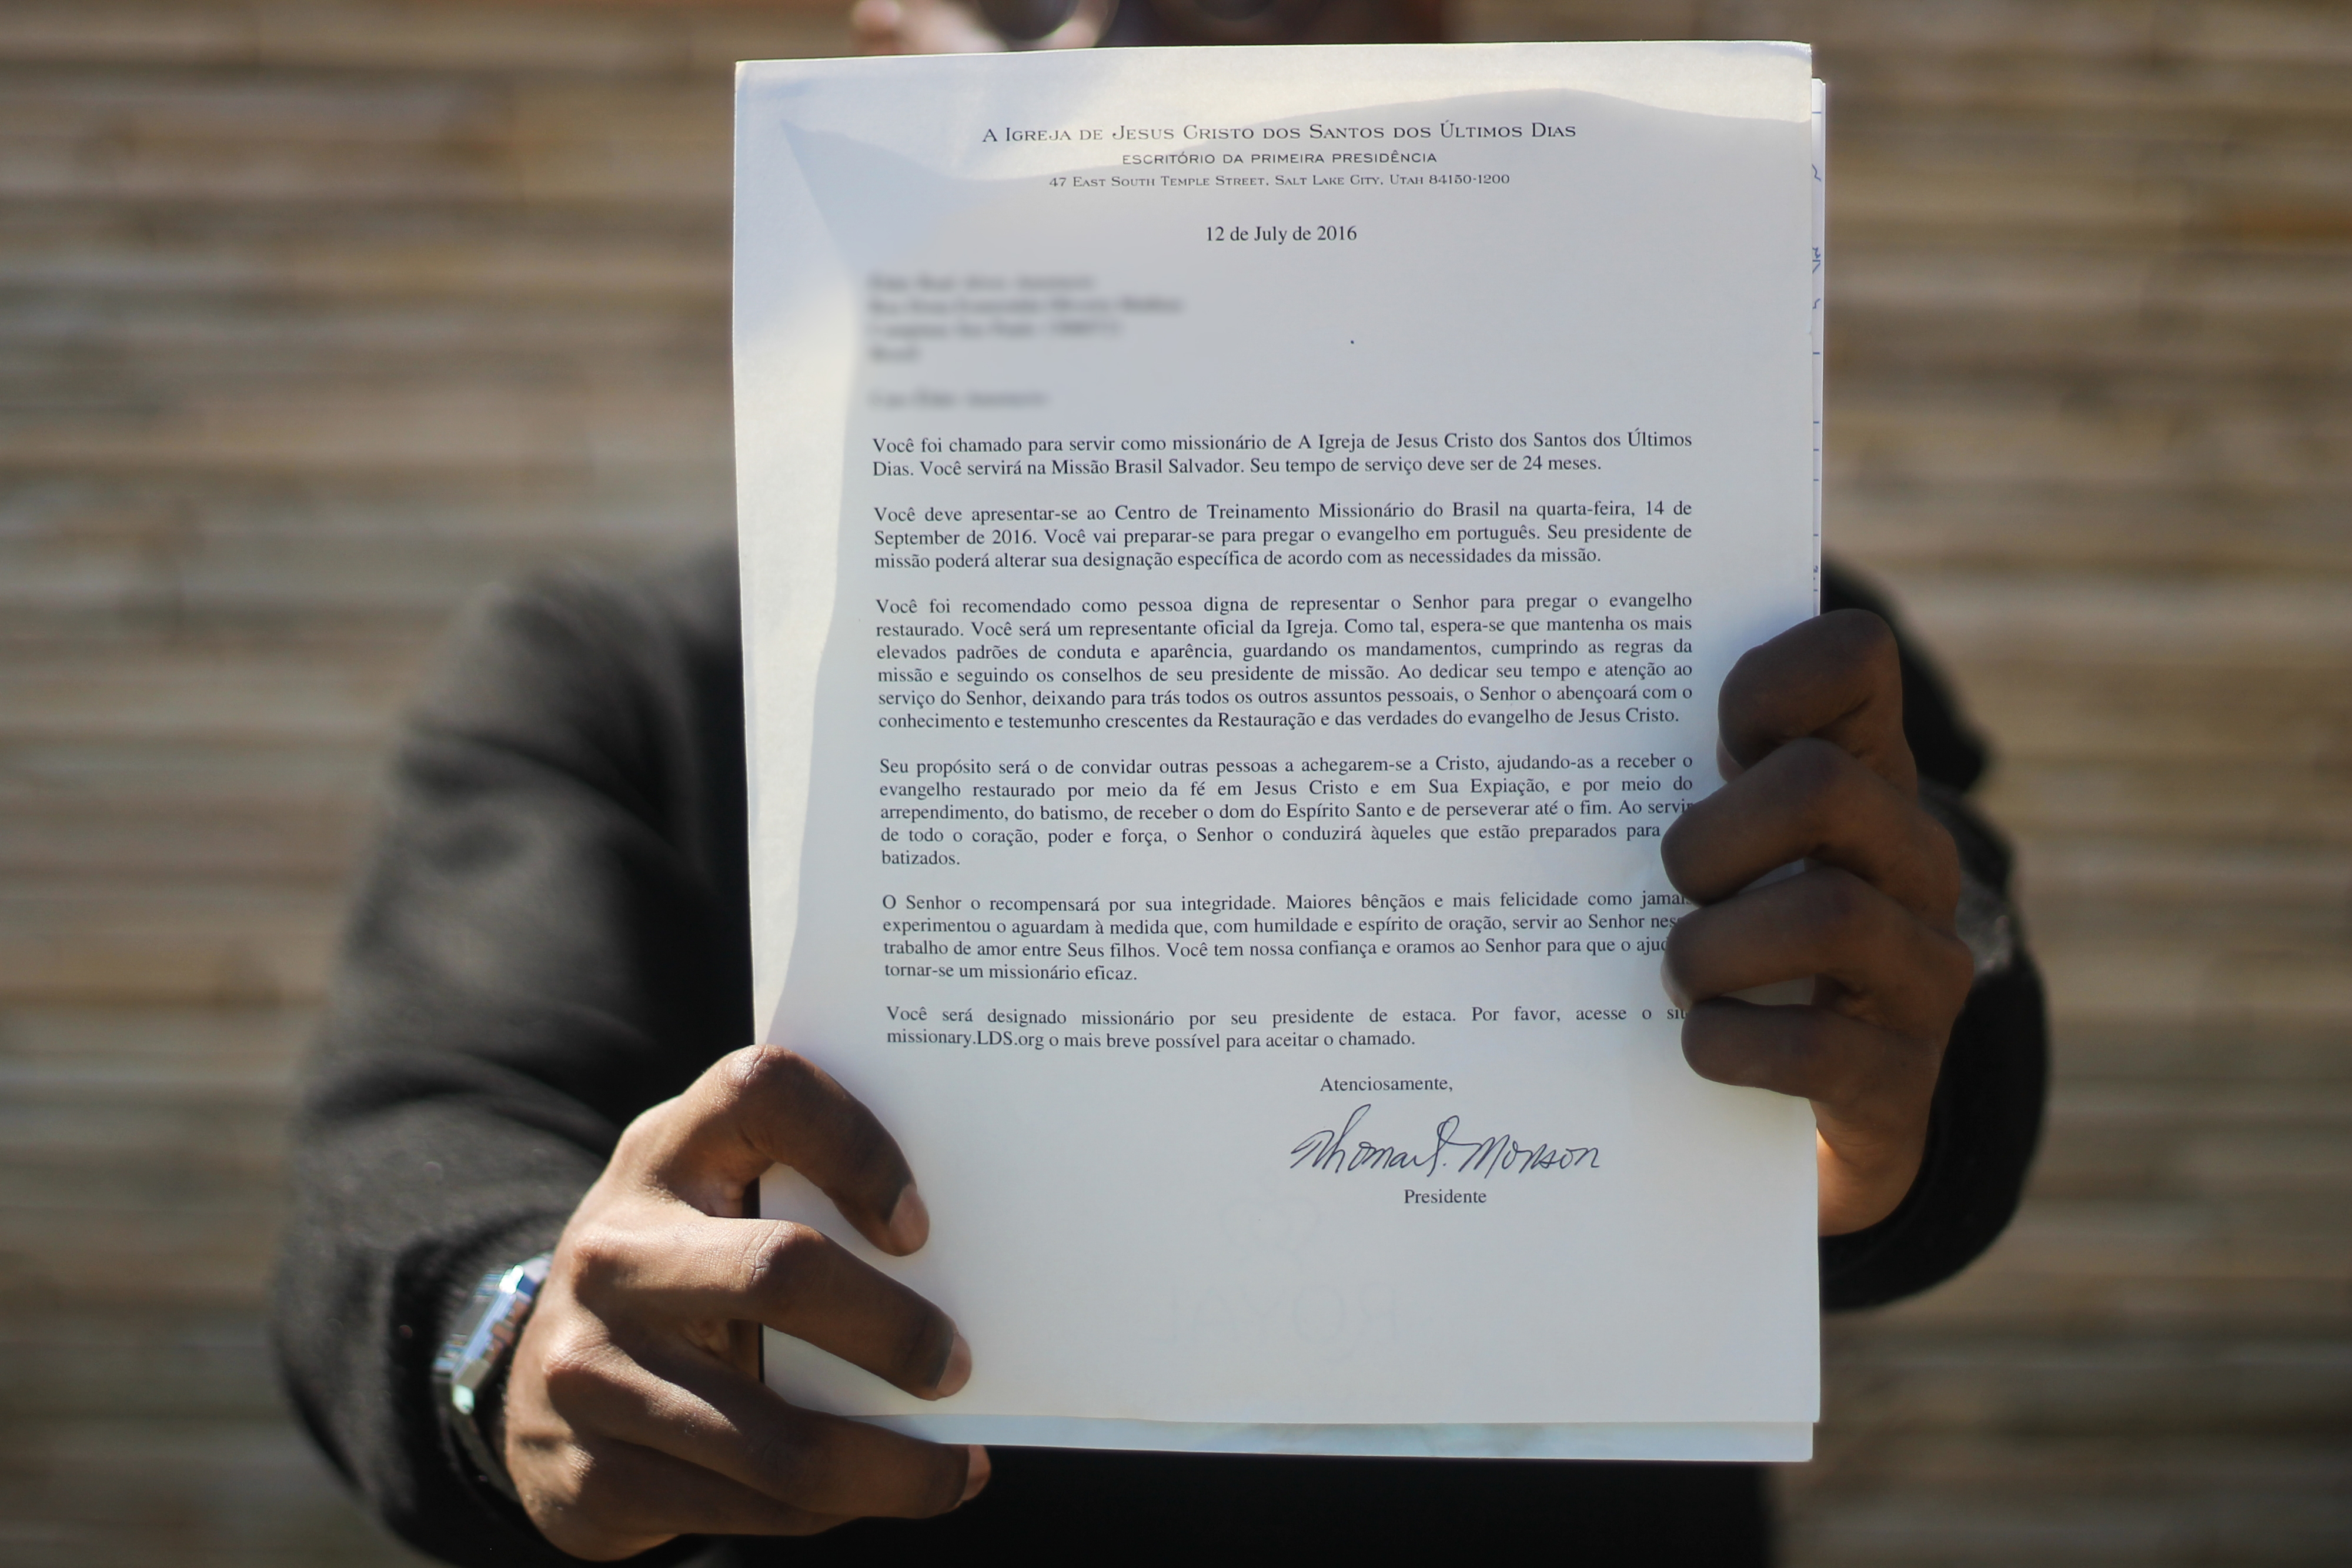 A Igreja de Jesus Cristo dos Santos dos Últimos Dias
ESCRITÓRIO DA PRIMEIRA PRESIDÊNCIA
47 East South Temple Street, Salt Lake City, Utah 84150-1200
12 de July de 2016
Você foi chamado para servir como missionário de A Igreja de Jesus Cristo dos Santos dos Últimos
Dias. Você servirá na Missão Brasil Salvador. Seu tempo de serviço deve ser de 24 meses.
Você deve apresentar-se ao Centro de Treinamento Missionário do Brasil na quarta-feira, 14 de
September de 2016. Você vai preparar-se para pregar o evangelho em português. Seu presidente de
missão poderá alterar sua designação específica de acordo com as necessidades da missão.
Você foi recomendado como pessoa digna de representar o Senhor para pregar o evangelho
restaurado. Você será um representante oficial da Igreja. Como tal, espera-se que mantenha os mais
elevados padrões de conduta e aparência, guardando os mandamentos, cumprindo as regras da
missão e seguindo os conselhos de seu presidente de missão. Ao dedicar seu tempo e atenção ao
serviço do Senhor, deixando para trás todos os outros assuntos pessoais, o Senhor o abençoará com o
conhecimento e testemunho crescentes da Restauração e das verdades do evangelho de Jesus Cristo.
Seu propósito será o de convidar outras pessoas a achegarem-se a Cristo, ajudando-as a receber o
evangelho restaurado por meio da fé em Jesus Cristo e em Sua Expiação, e por meio do
arrependimento, do batismo, de receber o dom do Espírito Santo e de perseverar até o fim. Ao servir
de todo o coração, poder e força, o Senhor o conduzirá àqueles que estão preparados para
batizados.
O Senhor o recompensará por sua integridade. Maiores bênçãos e mais felicidade como jamais
experimentou o aguardam à medida que, com humildade e espírito de oração, servir ao Senhor
trabalho de amor entre Seus filhos. Você tem nossa confiança e oramos ao Senhor para que o
tornar-se um missionário eficaz.
Você será designado missionário por seu presidente de estaca. Por favor, acesse o
missionary.LDS.org o mais breve possível para aceitar o chamado.
Atenciosamente,
Thomas S. Monson
Presidente